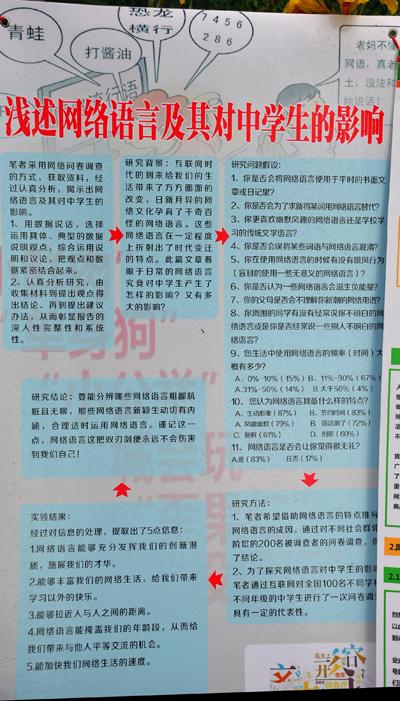 恐龙
横行
青蛙
打酱油
7456
286
老妈不
网语，真老
土，没法和
她说话！
流行语
浅述网络语言及其对中学生的影响
笔者采用网络问卷调查
的方式，获取资料，经
过认真分析，揭示出网
络语言及其对中学生的
影响。
1、用数据说话，选择
运用具体、典型的数据
说明观点，综合运用说
明和议论，把观点和数
据紧密结合起来。
2、认真分析研究，由
收集材料到提出观点得
出结论、再到提出建议
办法，从而彰显报告的
深入性完整性和系统
性。
研究背景：互联网时代
的到来给我们的生
活带来了方方面面的
改变，日新月异的网
络文化孕育了千奇百
怪的网络语言。这些
网络语言在一定程度
上折射出了时代变迁
的特点。此篇文章着
眼于日常的网络语言
究竟对中学生产生了
怎样的影响？又有多
大的影响？
研究问题假设：
1、你是否会将网络语言使用于平时的书面文
章或日记里？
2、你是否会为了求新将某词用网络语言替代？
3、你更喜欢幽默风趣的网络语言还是学校学
习的传统文学语言？
4、你是否会误将某些词语与网络语言混淆？
5、你在使用网络语言的时候有没有跟风行为
（盲目的使用一些无意义的网络语言）？
6、你是否认为一些网络语言会滋生负能量？
7、你的父母是否会不理解你新潮的网络用语？
8、你周围的同学有没有经常说你不明白的网
络语言或是你是否经常说一些别人不明白的网
络语言？
9、您生活中使用网络语言的频率（时间）大
概有多少？
A．0%-10%（15%）B．11%-30%（67%）
A.31%-50%（14%）B.大于50%（4%）
10、您认为网络语言具备什么样的特点？
A．生动形象（87%） B．节约时间（83%）
A．风趣幽默（79%） B．简洁明了（72%）
C．新鲜（61%） D．创新（60%）
11、网络语言是否会让你觉得很无礼？
A是（83%） B否（17%）
研究结论：要能分辨哪些网络语言粗鄙肮
脏且无聊，那些网络语言新颖生动切有内
涵，合理适时运用网络语言。谨记这一
点，网络语言这把双刃剑便永远不会伤害
到我们自己！
研究方法：
1、笔者希望借助网络语言的特点推导
网络语言的成因。通过对不同社会群体
阶层的200名被调查者的问卷调查，得
了结论。
2、为了探究网络语言对中学生的影
笔者通过互联网对全国100名不同学校
不同年级的中学生进行了一次问卷调
具有一定的代表性。
实验结果：
经过对信息的处理，提取出了5点信息：
1.网络语言能够充分发挥我们的创新潜
质，施展我们的才华。
2.能够丰富我们的网络生活，给我们带来
学习以外的快乐。
3.能够拉近人与人之间的距离。
4.网络语言能掩盖我们的年龄段，从而给
我们带来与他人平等交流的机会。
5.能加快我们网络生活的速度。